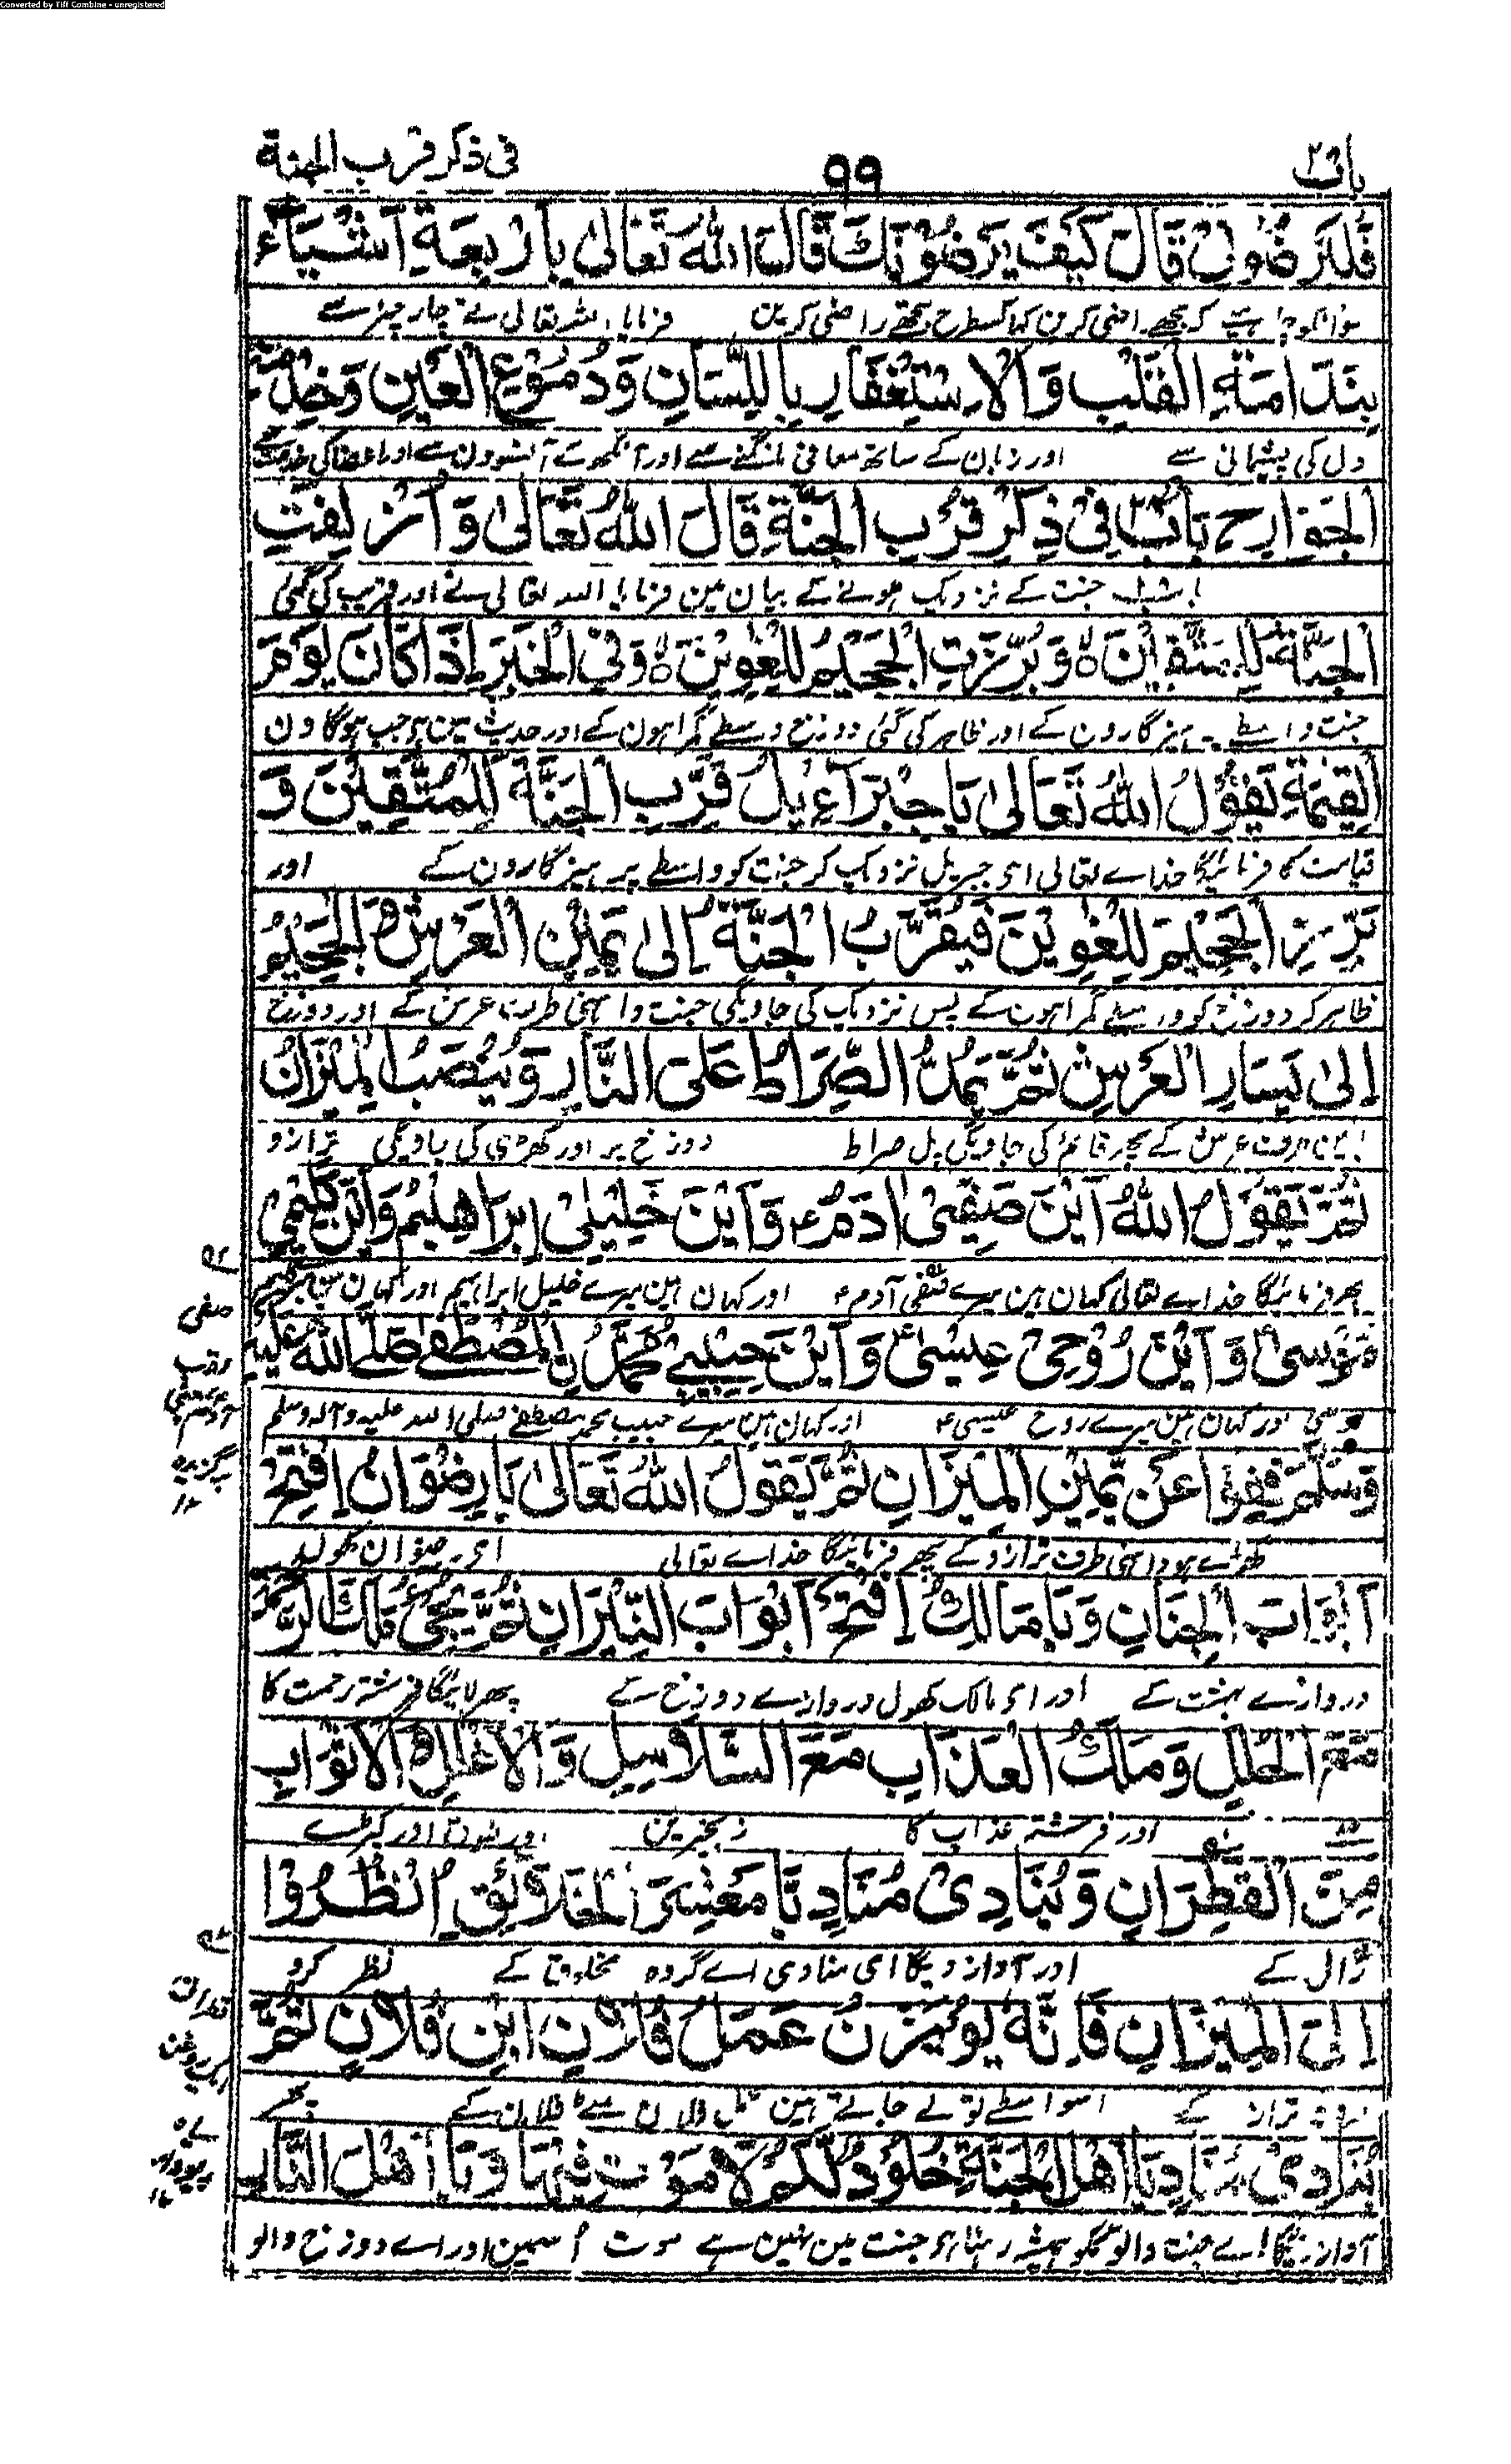 Converted by Tiff Combine - unregistered
باب ٩٩ فی ذکر قرب الجنة
فَلْیَرْضُوْنِیْ قَالَ کَیْفَ یَرْضُوْنَكَ قَالَ اللّٰهُ تَعَالٰی بِاَرْبَعَةِ اَشْیَآءَ
کہ مجھے راضی کرین کہا کسطرح تجھے راضی کرین فرمایا اللہ تعالی نے چار چیز سے
بِنَدَامَةِ الْقَلْبِ وَالْاِسْتِغْفَارِ بِاللِّسَانِ وَدُمُوْعِ الْعَیْنِ وَخِدْمَةِ
دل کی پشیمانی سے اور زبان کے ساتھ معافی مانگنے سے اور آنکھ کے آنسوون سے اور اعضا کی خدمت سے
الْجَوَارِحِ بَابٌ فِیْ ذِکْرِ قُرْبِ الْجَنَّةِ قَالَ اللّٰهُ تَعَالٰی وَاُزْلِفَتِ
جنت کے نزدیک ہونے کے بیان مین فرمایا اللہ تعالی نے اور قریب کی گئی
الْجَنَّةُ لِلْمُتَّقِیْنَ ہ وَبُرِّزَتِ الْجَحِیْمُ لِلْغٰوِیْنَ ہ وَفِی الْخَبَرِ اِذَا کَانَ یَوْمَ
جنت واسطے پرہیزگارون کے اور ظاہر کی گئی دوزخ واسطے گمراہون کے اور حدیث مین ہے جب ہوگا دن
الْقِیٰمَةِ یَقُوْلُ اللّٰهُ تَعَالٰی یَا جِبْرَآءِیْلُ قَرِّبِ الْجَنَّةَ لِلْمُتَّقِیْنَ وَ
قیامت کا فرمائیگا خداے تعالی ای جبریل نزدیک کر جنت کو واسطے پرہیزگارون کے اور
بَرِّزِ الْجَحِیْمَ لِلْغٰوِیْنَ فَیُقَرَّبُ الْجَنَّةُ اِلٰی یَمِیْنِ الْعَرْشِ وَالْجَحِیْمُ
ظاہر کر دوزخ کو واسطے گمراہون کے پس نزدیک کی جاویگی جنت داہنی طرف عرش کے اور دوزخ
اِلٰی یَسَارِ الْعَرْشِ ثُمَّ یُمَدُّ الصِّرَاطُ عَلَی النَّارِ وَیُنْصَبُ الْمِیْزَانُ
بائین طرف عرش کے پھر قائم کی جاویگی پل صراط دوزخ پر اور کھڑی کی جاویگی ترازو
ثُمَّ یَقُوْلُ اللّٰهُ اَیْنَ صَفِیِّیْ اٰدَمُ ع وَاَیْنَ خَلِیْلِیْ اِبْرَاهِیْمُ وَاَیْنَ کَلِیْمِیْ
پھر فرمائیگا خداے تعالی کہان ہین میرے صفی آدم ؑ اور کہان ہین میرے خلیل ابراہیم اور کہان ہین میرے کلیم
مُوْسٰی وَاَیْنَ رُوْحِیْ عِیْسٰی وَاَیْنَ حَبِیْبِیْ مُحَمَّدُ نِ الْمُصْطَفٰے صَلَّی اللّٰهُ عَلَیْهِ
موسی اور کہان ہین میرے روح عیسی ؑ اور کہان ہین میرے حبیب محمد مصطفے صلی اللہ علیہ وآلہ وسلم
وَسَلَّمَ فَقِفُوْا عَنْ یَّمِیْنِ الْمِیْزَانِ ثُمَّ یَقُوْلُ اللّٰهُ تَعَالٰی یَا رِضْوَانُ افْتَحْ
کھڑے ہو داہنی طرف ترازو کے پھر فرمائیگا خداے تعالی ای رضوان کھولدے
اَبْوَابَ الْجِنَانِ وَیَا مَالِكُ افْتَحْ اَبْوَابَ النِّیْرَانِ ثُمَّ یَجِیْءُ مَلَكُ الرَّحْمَةِ
دروازے بہشت کے اور ای مالک کھول دروازے دوزخ کے پھر لائیگا فرشتہ رحمت کا
مَعَ الْحُلَلِ وَمَلَكُ الْعَذَابِ مَعَ السَّلَاسِلِ وَالْاَغْلَالِ وَالْاَثْوَابِ
اور فرشتہ عذاب کا زنجیرین اور طوق اور کپڑے
مِنَ الْقَطِرَانِ وَیُنَادِیْ مُنَادٍ یَا مَعْشَرَ الْخَلَائِقِ انْظُرُوْا
رال کے اور آواز دیگا ای منادی اے گروہ مخلوقا کے نظر کرو
اِلَی الْمِیْزَانِ فَاِنَّهٗ یُوْزَنُ عَمَلُ فُلَانِ ابْنِ فُلَانٍ ثُمَّ
ترازو کے اسواسطے تولے جاتے ہین عمل فلان بیٹے فلان کے پھر
یُنَادِیْ مُنَادٍ یَا اَهْلَ الْجَنَّةِ خُلُوْدٌ لَّکُمْ لَا مَوْتَ فِیْهَا وَیَا اَهْلَ النَّارِ
آواز دیگا اے جنت والو تمکو ہمیشہ رہنا ہی جنت مین نہین ہے موت اسمین اور اے دوزخ والو
صفی
لقب
آدم
برگزیدہ
۱۲
قطران